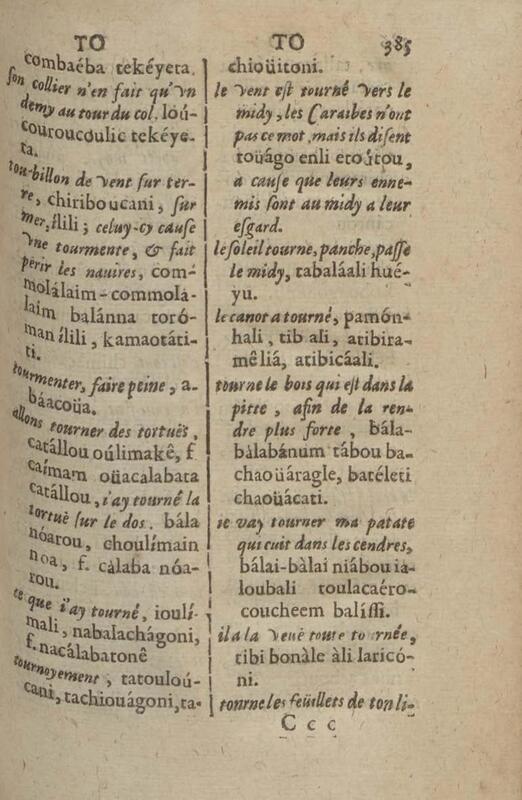 TO
combaéba tekéyeta.
son collier n'en fait qu'vn
demy au tour du col. loú-
couroucoulic tekéye-
ta.
tourbillon de vent sur ter-
re, chiriboucani, sur
mer, ílili; celuy-cy cause
vne tourmente, & fait
perir les nauires, com-
molálaim-commolá-
laim balánna toró-
man ílili, kamaotáti-
ti.
tourmenter, faire peine, a-
báacoüa.
allons tourner des tortuës,
catállou oúlimakê, f.
caímam oüacalabata
catállou, i'ay tourné la
tortuë sur le dos. bála
nóarou, choulímain
noa, f. càlaba nóa-
rou.
ce que i'ay tourné, ioulí-
mali, nabalachágoni,
f. nacálabatonê
tournoyement, tatouloú-
cani, tachiouágoni, ta-
TO 385
chioüitoni.
le vent est tourné vers le
midy, les Caraibes n'ont
pas ce mot, mais ils disent
toüágo enli etoútou,
a cause que leurs enne-
mis sont au midy a leur
esgard.
le soleil tourne, panche, passe
le midy, tabaláali hué-
yu.
le canot a tourné, pamón-
hali, tib ali, atibira-
mêliá, atibicáali.
tourne le bois qui est dans la
pitte, afin de la ren-
dre plus forte, bála-
bàlabánum tábou ba-
chaoüáragle, batéleti
chaoüácati.
ie vay tourner ma patate
qui cuit dans les cendres,
bálai-bàlai niábou ia-
loubali toulacaéro-
coucheem balíssi.
il a la veuë toute tournée,
tibi bonàle àli laricó-
ni.
tourne les feüillets de ton li-
C c c